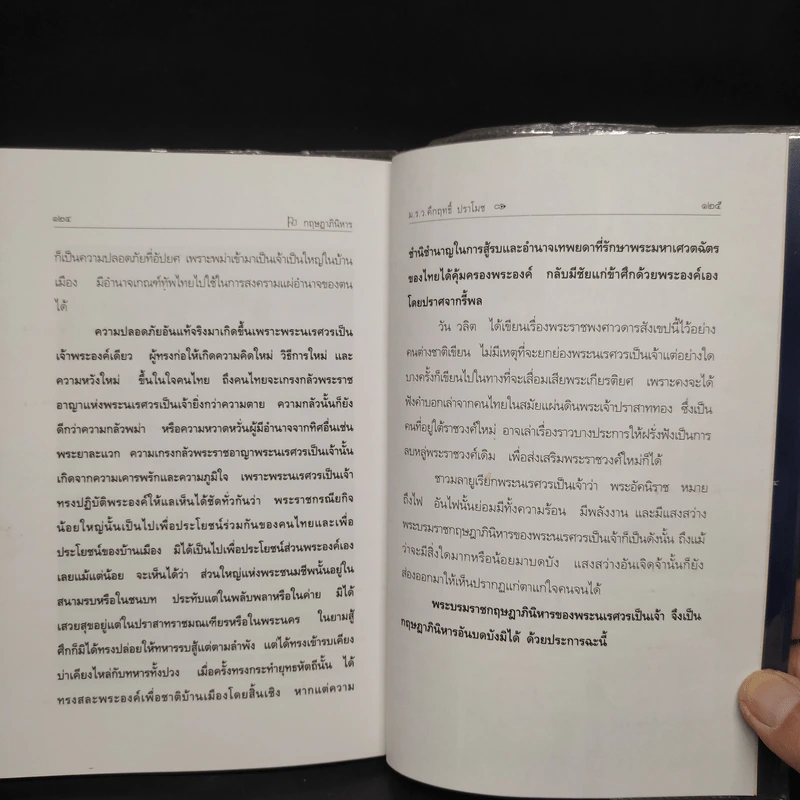 ๑๒๔ กฤษฎาภินิหาร
ก็เป็นความปลอดภัยที่อัปยศ เพราะพม่าเข้ามาเป็นเจ้าเป็นใหญ่ในบ้าน
เมือง มีอำนาจเกณฑ์ทัพไทยไปใช้ในการสงครามแผ่อำนาจของตน
ได้
ความปลอดภัยอันแท้จริงมาเกิดขึ้นเพราะพระนเรศวรเป็น
เจ้าพระองค์เดียว ผู้ทรงก่อให้เกิดความคิดใหม่ วิธีการใหม่ และ
ความหวังใหม่ ขึ้นในใจคนไทย ถึงคนไทยจะเกรงกลัวพระราช
อาญาแห่งพระนเรศวรเป็นเจ้ายิ่งกว่าความตาย ความกลัวนั้นก็ยัง
ดีกว่าความกลัวพม่า หรือความหวาดหวั่นผู้มีอำนาจจากทิศอื่นเช่น
พระยาละแวก ความเกรงกลัวพระราชอาญาพระนเรศวรเป็นเจ้านั้น
เกิดจากความเคารพรักและความภูมิใจ เพราะพระนเรศวรเป็นเจ้า
ทรงปฏิบัติพระองค์ให้แลเห็นได้ชัดทั่วกันว่า พระราชกรณียกิจ
น้อยใหญ่นั้นเป็นไปเพื่อประโยชน์ร่วมกันของคนไทยและเพื่อ
ประโยชน์ของบ้านเมือง มิได้เป็นไปเพื่อประโยชน์ส่วนพระองค์เอง
เลยแม้แต่น้อย จะเห็นได้ว่า ส่วนใหญ่แห่งพระชนมชีพนั้นอยู่ใน
สนามรบหรือในชนบท ประทับแต่ในพลับพลาหรือในค่าย มิได้
เสวยสุขอยู่แต่ในปราสาทราชมณเฑียรหรือในพระนคร ในยามสู้
ศึกก็มิได้ทรงปล่อยให้ทหารรบสู้แต่ตามลำพัง แต่ได้ทรงเข้ารบเคียง
บ่าเคียงไหล่กับทหารทั้งปวง เมื่อครั้งทรงกระทำยุทธหัตถีนั้น ได้
ทรงสละพระองค์เพื่อชาติบ้านเมืองโดยสิ้นเชิง หากแต่ความ
ม.ร.ว คึกฤทธิ์ ปราโมช ๑๒๕
ชำนิชำนาญในการสู้รบและอำนาจเทพยดาที่รักษาพระมหาเศวตฉัตร
ของไทยได้คุ้มครองพระองค์ กลับมีชัยแก่ข้าศึกด้วยพระองค์เอง
โดยปราศจากรี้พล
วัน วลิต ได้เขียนเรื่องพระราชพงศาวดารสังเขปนี้ไว้อย่าง
คนต่างชาติเขียน ไม่มีเหตุที่จะยกย่องพระนเรศวรเป็นเจ้าแต่อย่างใด
บางครั้งก็เขียนไปในทางที่จะเสื่อมเสียพระเกียรติยศ เพราะคงจะได้
ฟังคำบอกเล่าจากคนไทยในสมัยแผ่นดินพระเจ้าปราสาททอง ซึ่งเป็น
คนที่อยู่ใต้ราชวงศ์ใหม่ อาจเล่าเรื่องราวบางประการให้ฝรั่งฟังเป็นการ
ลบหลู่พระราชวงศ์เดิม เพื่อส่งเสริมพระราชวงศ์ใหม่ก็ได้
ชาวมลายูเรียกพระนเรศวรเป็นเจ้าว่า พระอัคนิราช หมาย
ถึงไฟ อันไฟนั้นย่อมมีทั้งความร้อน มีพลังงาน และมีแสงสว่าง
พระบรมราชกฤษฎาภินิหารของพระนเรศวรเป็นเจ้าก็เป็นดังนั้น ถึงแม้
ว่าจะมีสิ่งใดมากหรือน้อยมาบดบัง แสงสว่างอันเจิดจ้านั้นก็ยัง
ส่องออกมาให้เห็นปรากฏแก่ตาแก่ใจคนจนได้
พระบรมราชกฤษฎาภินิหารของพระนเรศวรเป็นเจ้า จึงเป็น
กฤษฎาภินิหารอันบดบังมิได้ ด้วยประการฉะนี้